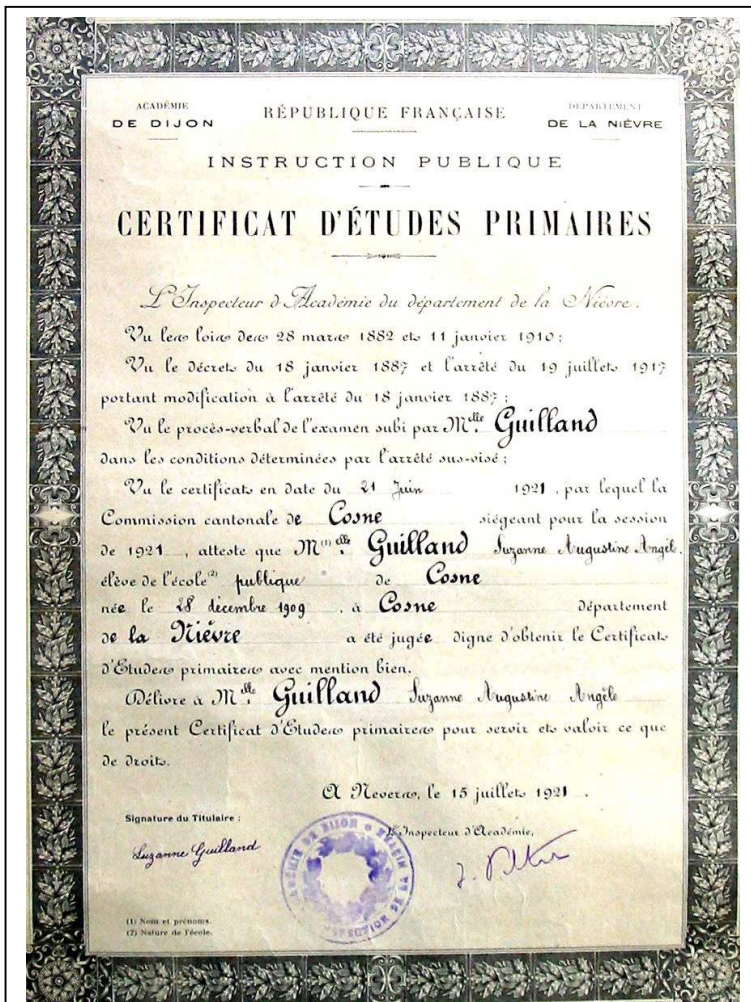 ACADÉMIE
DE DIJON
RÉPUBLIQUE FRANÇAISE
DÉPARTEMENT
DE LA NIÈVRE
INSTRUCTION PUBLIQUE
CERTIFICAT D'ÉTUDES PRIMAIRES
L'Inspecteur d'Académie du département de la Nièvre.
Vu les lois des 28 mars 1882 et 11 janvier 1910 ;
Vu le décret du 18 janvier 1887 et l'arrêté du 19 juillet 1917
portant modification à l'arrêté du 18 janvier 1887 ;
Vu le procès-verbal de l'examen subi par Melle Guilland
dans les conditions déterminées par l'arrêté sus-visé ;
Vu le certificat en date du 21 Juin 1921, par lequel la
Commission cantonale de Cosne siégeant pour la session
de 1921, atteste que M(1) elle Guilland Suzanne Augustine Angèle.
élève de l'école(2) publique de Cosne
née le 28 décembre 1909. à Cosne département
de la Nièvre a été jugée digne d'obtenir le Certificat
d'Etudes primaires avec mention bien.
Délivré à Melle Guilland Suzanne Augustine Angèle
le présent Certificat d'Etudes primaires pour servir et valoir ce que
de droit.
A Nevers, le 15 juillet 1921.
Signature du Titulaire :
L'Inspecteur d'Académie,
Suzanne Guilland
(1) Nom et prénoms.
(2) Nature de l'école.